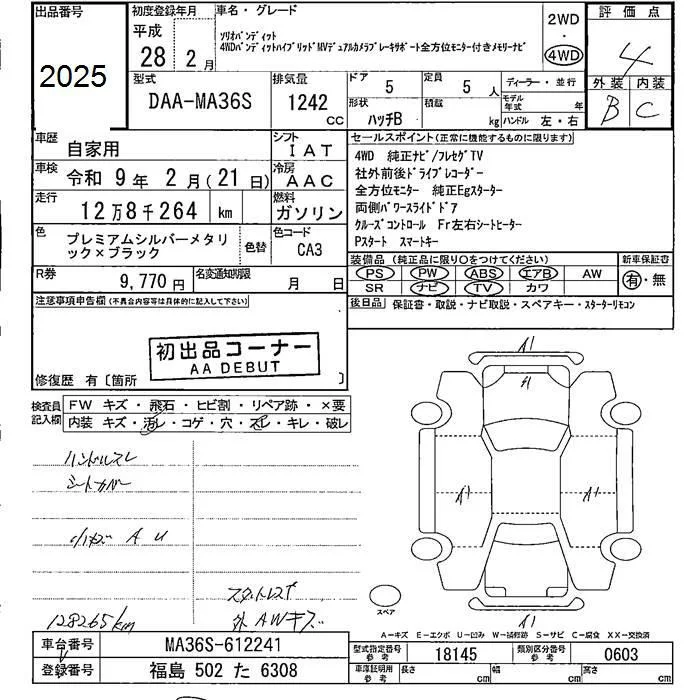 出品番号
2025
初度登録年月
平成
28 年 2 月
車名・グレード
ソリオバンディット
4WDバンディットハイブリッドMVデュアルカメラブレーキサポート全方位モニター付きメモリーナビ
2WD
・
4WD
評価点
4
外装 内装
B C
型式
DAA-MA36S
排気量
1242 CC
ドア
5
定員
5 人
形状
ハッチB
積載
kg
ディーラー・並行
モデル年式 年
ハンドル 左・右
車歴
自家用
シフト
IAT
車検
令和 9 年 2 月(21 日)
冷房
AAC
走行
12万8千264 km
燃料
ガソリン
色
プレミアムシルバーメタリ
ック×ブラック
色替
色コード
CA3
R券
9,770 円
名変通知期限
月 日
セールスポイント(正常に機能するものに限ります)
4WD 純正ナビ/フルセグTV
社外前後ドライブレコーダー
全方位モニター 純正Egスターター
両側パワースライドドア
クルーズコントロール Fr左右シートヒーター
Pスタート スマートキー
装備品(純正品に限り○をつけてください)
PS PW ABS エアB AW
SR ナビ TV カワ
新車保証書
有・無
後日品 保証書・取説・ナビ取説・スペアキー・スターターリモコン
注意事項申告欄(不具合内容等は具体的に記入して下さい)
初出品コーナー
AA DEBUT
修復歴 有〔箇所 〕
検査員記入欄
FW キズ・飛石・ヒビ割・リペア跡・×要
内装 キズ・汚レ・コゲ・穴・スレ・キレ・破レ
ハンドルスレ
シートカバー
小キズ A U
スタットレス
外AWキズ
128265km
A1
A
A1 A1
A1
スペア
A−キズ E−エクボ U−凹み W−補修跡 S−サビ C−腐食 XX−交換済
車台番号 MA36S-612241
登録番号 福島 502 た 6308
型式指定番号 参考 18145
類別区分番号 参考 0603
車庫証明用 参考 長さ cm 幅 cm 高さ cm